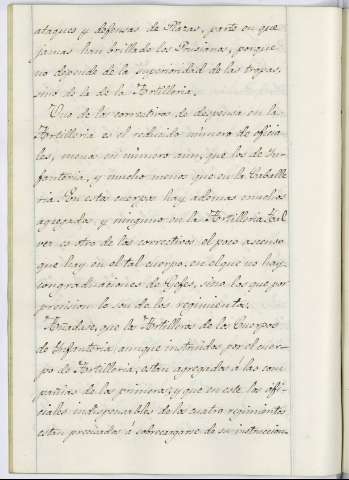 ataques y defensas de Plazas, parte en que
jamas han brillado los Prusianos, porque
no depende de la superioridad de las tropas,
sino de la de la Artilleria.
Uno de los correctivos de dispensa en la
Artilleria es el reducido número de oficia-
les, menor en número aun, que los de In-
fanteria, y mucho menos que en la Caballe-
ria. En estos cuerpos hay ademas muchos
agregados, y ninguno en la Artilleria. Tal
vez es otro de los correctivos, el poco ascenso
que hay en el tal cuerpo, en el que no hay
con graduaciones de Gefes, sino los que por
precision lo son de los regimientos.
Añadese, que los Artilleros de los Cuerpos
de Infanteria, aunque instruidos por el cuer-
po de Artilleria, estan agregados á las com-
pañias de los primeros; y que en este los ofi-
ciales indispensables de los cuatro regimientos
estan precisados á sobrecargarse de su instruccion.